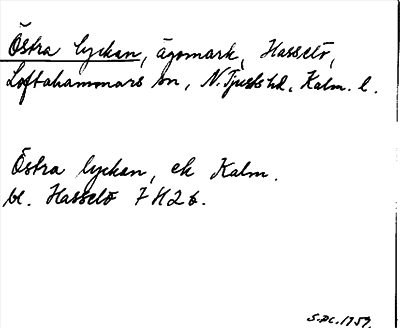 Östra lyckan, ägomark, Hasselö,
Loftahammars sn, N. Tjusts hd, Kalm. l.
Östra lyckan, ek Kalm.
bl. Hasselö 7 H 2 b.
1959.